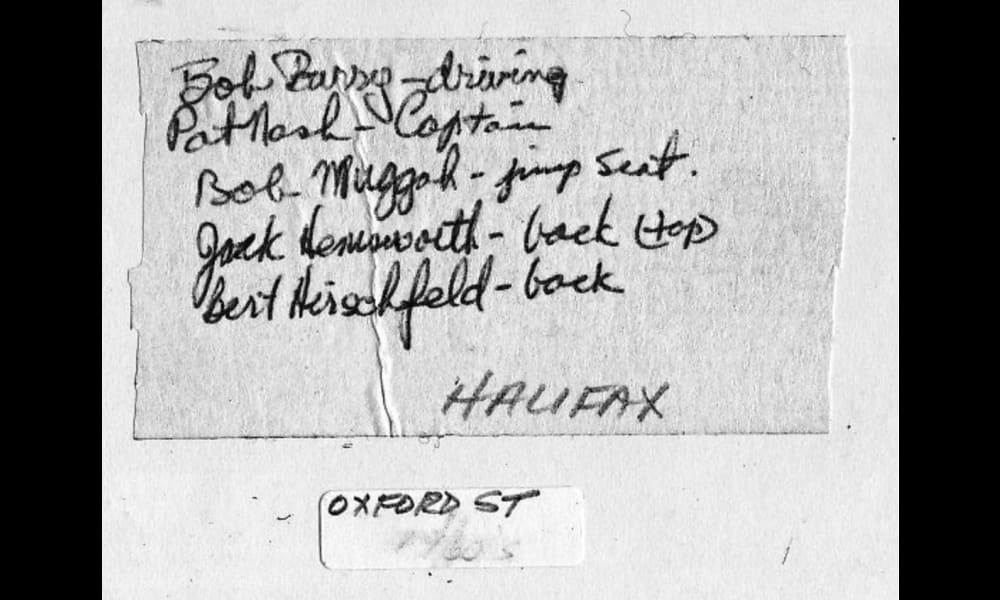 Bob Barry - driving
Pat Nash - Captain
Bob Muggah - jump seat.
Jack Hemsworth - back (top)
Bert Hirschfeld - back
HALIFAX
OXFORD ST
1960's